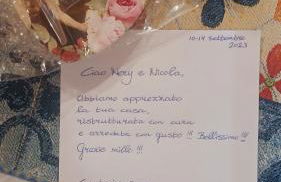 10-14 settembre
2023
Ciao Mery e Nicola,
Abbiamo apprezzato
la tua casa,
ristrutturata con cura
e arredata con gusto !!! Bellissimo !!!
Grazie mille !!!